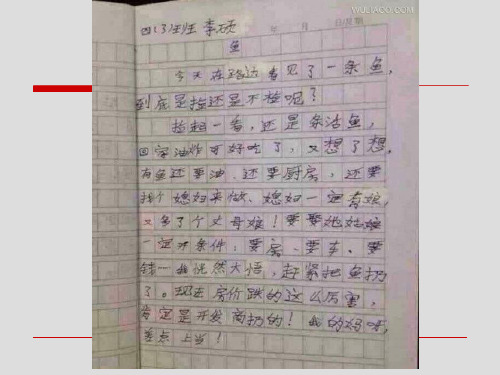 WULIAOO.COM
四(3)班 李硕
年 月 日
鱼
今天在路边看见了一条鱼,
到底是捡还是不捡呢?
捡起一看,还是条活鱼,
回家油炸可好吃了,又想了想,
有鱼还要油、还要厨房,还要
找个媳妇来做、媳妇一定有娘,
又多了个丈母娘!要娶她姑娘
一定有条件:要房、要车、要
钱…我恍然大悟,赶紧把鱼扔
了。现在房价跌的这么厉害,
肯定是开发商扔的!我的妈呀,
差点上当!